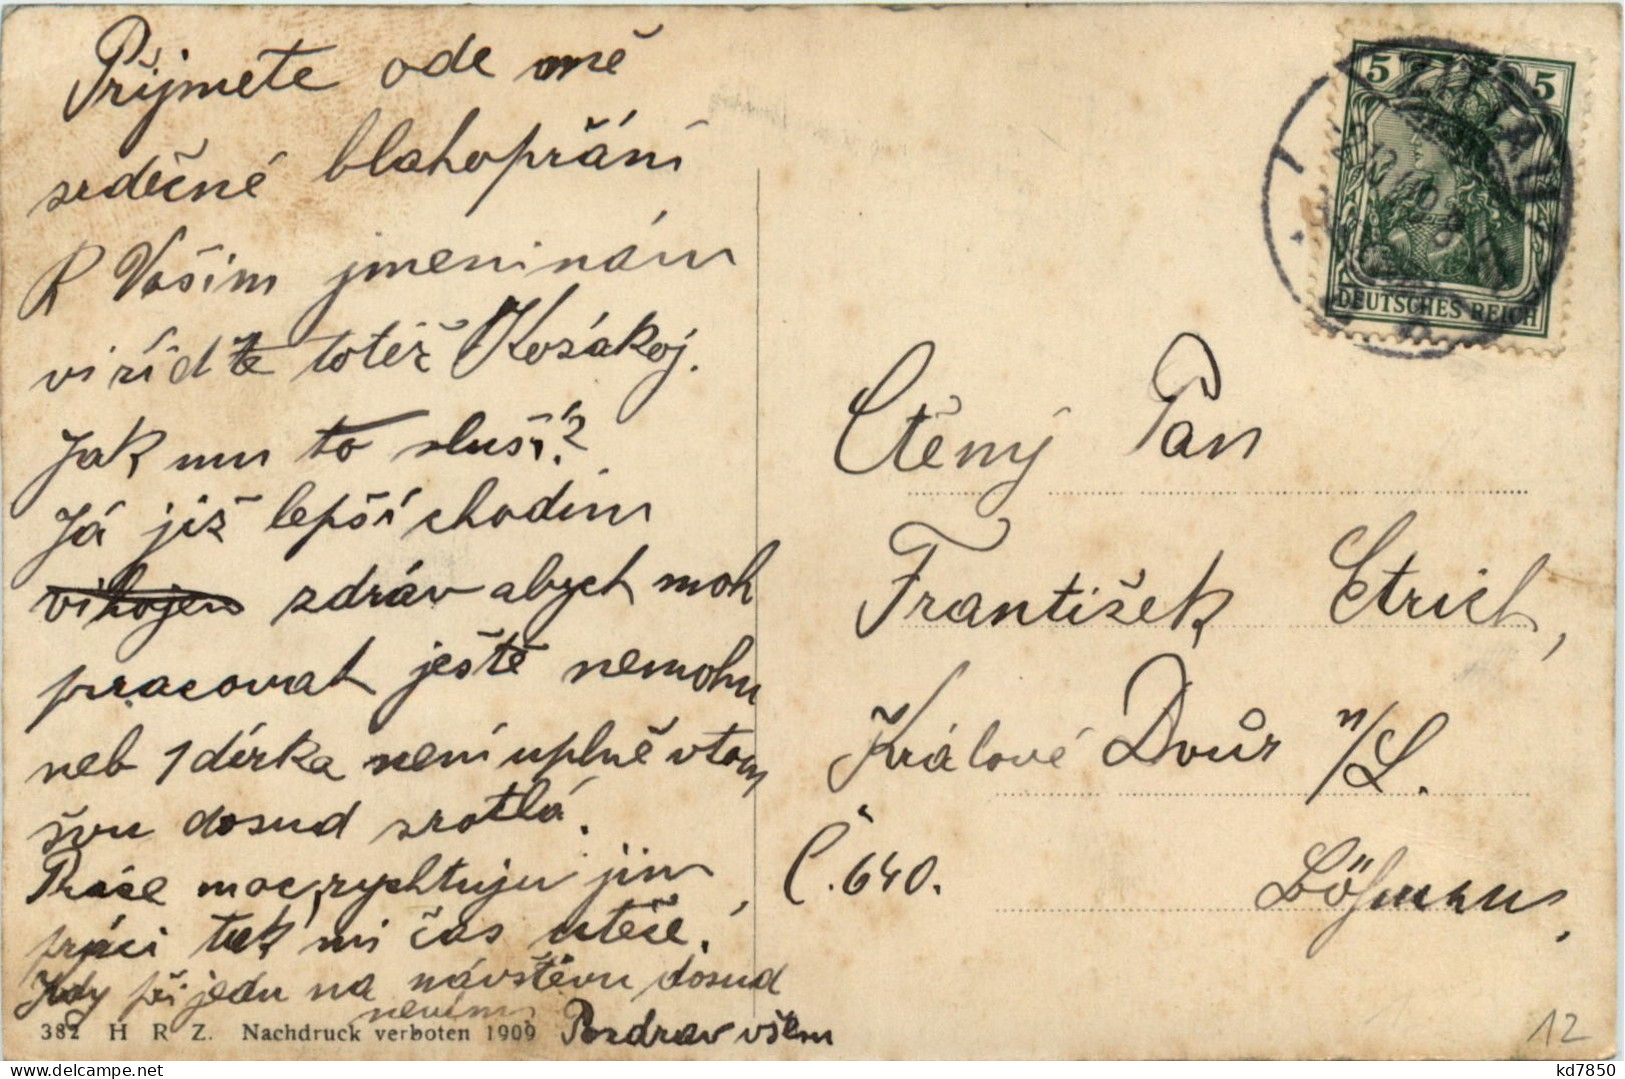 Přijmete ode mě
srdečné blahopřání
K Vašim jmeninám
viřidte totéž Kozákoj.
Jak mu to sluší?
Já již lepší chodim
zdráv abych moh
pracovat ještě nemohu
neb 1 dírka není uplně vtom
švu dosud srotlá.
moc rychtuju jin
práci tak mi čas uteče.
Kdy při jedu na návštěvu dosud
nevim
Pozdrav všem
382 H R Z. Nachdruck verboten 1909
5 5
ZITTAU
DEUTSCHES REICH
Ctěný Pan
František Etrich,
Králové Dvůr n/L.
Č. 640.
Böhmen,
12
kd7850